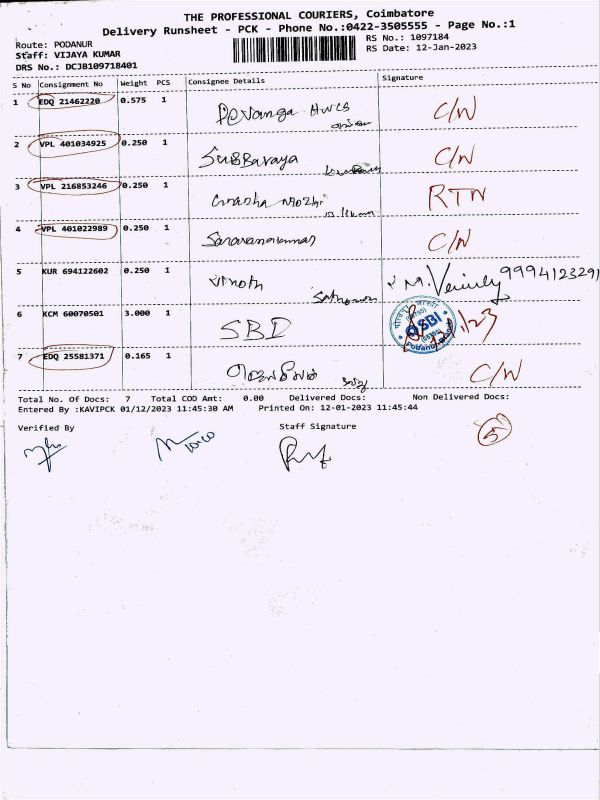 THE PROFESSIONAL COURIERS, Coimbatore
Delivery Runsheet - PCK - Phone No.:0422-3505555 - Page No.:1
Route: PODANUR
Staff: VIJAYA KUMAR
DRS No.: DCJB109718401
RS No.: 1097184
RS Date: 12-Jan-2023
S No Consignment No Weight PCS Consignee Details Signature
1 EDQ 21462220 0.575 1 Devanga C/W
2 VPL 401034925 0.250 1 Subbaraya C/W
3 VPL 216853246 0.250 1 RTN
4 VPL 401022989 0.250 1 Saravanakumar C/W
5 KUR 694122602 0.250 1 Vinoth 9994123291
6 KCM 60070501 3.000 1 SBI
SBI
7 EDQ 25581371 0.165 1 C/W
Total No. Of Docs: 7 Total COD Amt: 0.00 Delivered Docs: Non Delivered Docs:
Entered By :KAVIPCK 01/12/2023 11:45:30 AM Printed On: 12-01-2023 11:45:44
Verified By Staff Signature
5